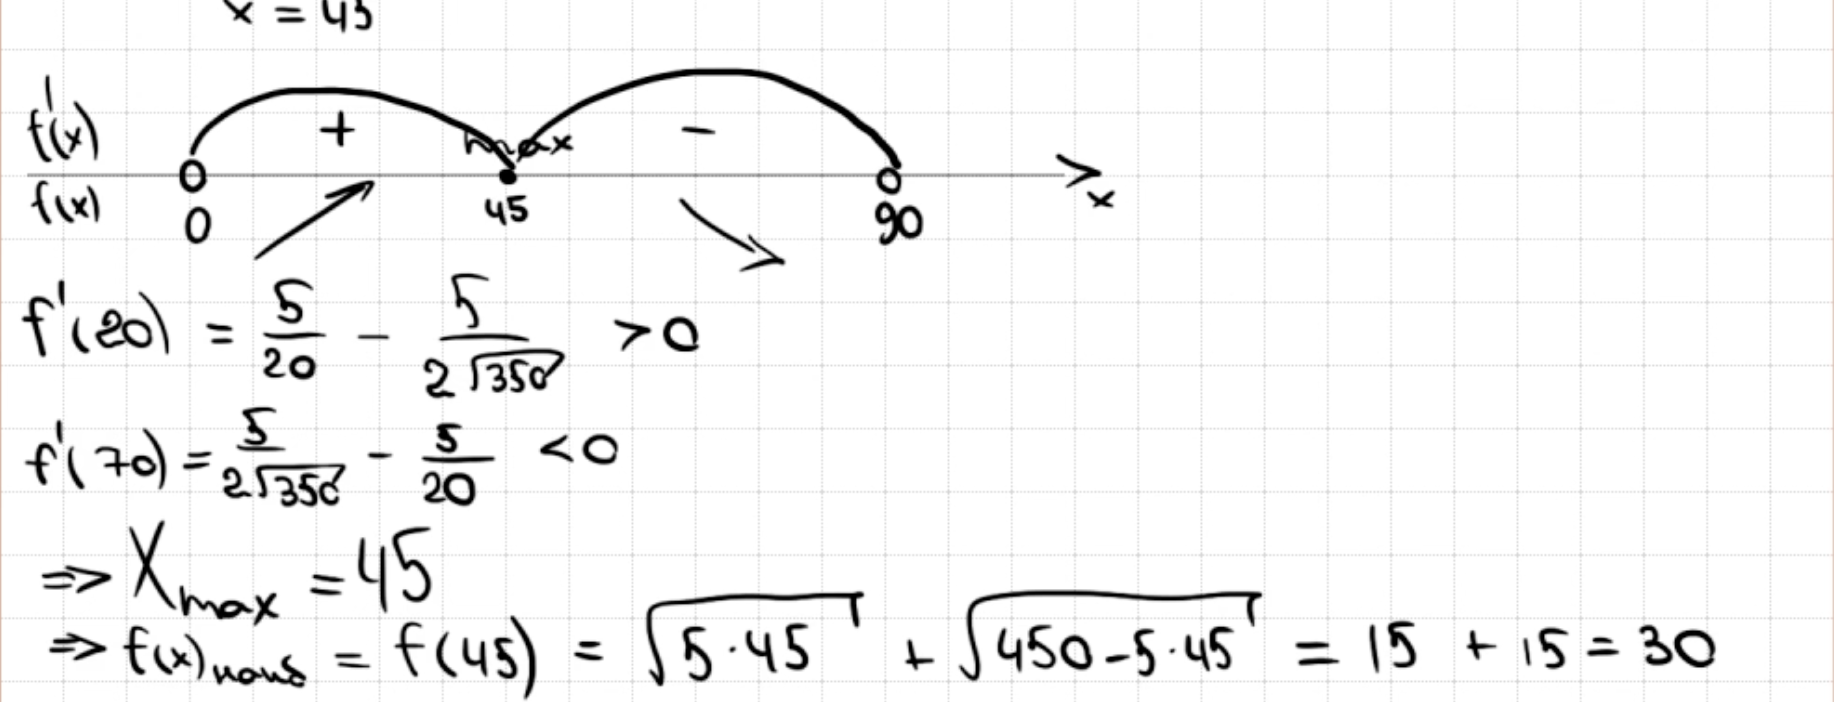 x = 45
f'(x) + max - 
f(x) 0 45 90 x
f'(20) = 5/20 - 5/(2√350) > 0
f'(70) = 5/(2√350) - 5/20 < 0
⇒ X max = 45
⇒ f(x) наиб = f(45) = √(5·45) + √(450-5·45) = 15 + 15 = 30